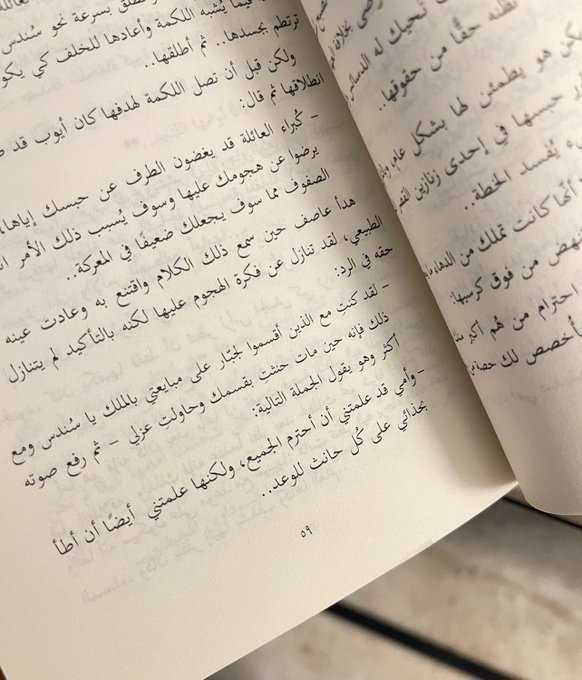 تحيك له الدسائس
حقًا من حقوقها..
هو يطمئن لها بشكل عام
حبسها في إحدى زنازين
يُفسد الخطة..
أنها كانت تملك من الدهاء
نهض من فوق كرسيها:
احترام من هُم أكبر
أخصص لك حصة
بسرعة نحو سُندس
فيما يُشبه اللكمة وأعادها للخلف كي
ترتطم بجسدها.. ثم أطلقها..
ولكن قبل أن تصل اللكمة لهدفها كان أيوب قد
انطلاقها ثم قال:
– كُبراء العائلة قد يغضون الطرف عن حبسك إياها،
يرضوا عن هجومك عليها وسوف يُسبب ذلك الأمر
الصفوف مما سوف يجعلك ضعيفًا في المعركة..
هدأ عاصف حين سمع ذلك الكلام واقتنع به وعادت عينه
الطبيعي، لقد تنازل عن فكرة الهجوم عليها لكنه بالتأكيد لم يتنازل
حقه في الرد:
– لقد كنتِ مع الذين أقسموا لجبّار على مبايعتي بالملك يا سُندس ومع
ذلك فإنه حين مات حنثتِ بقسمك وحاولت عزلي – ثم رفع صوته
أكثر وهو يقول الجملة التالية:
– وأمي قد علمتني أن أحترم الجميع، ولكنها علمتني أيضًا أن أطأ
بحذائي على كُل حانث للوعد..
٥٩